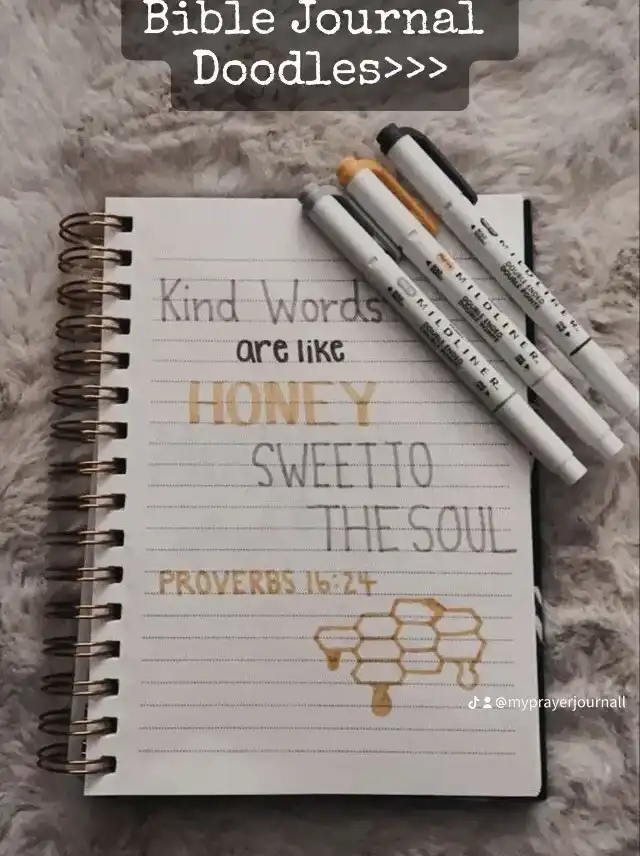 Bible Journal
Doodles>>>
Kind Words
are like
HONEY
SWEET TO
THE SOUL
PROVERBS 16:24
MILDLINER
MILDLINER
MILDLINER
@myprayerjournall